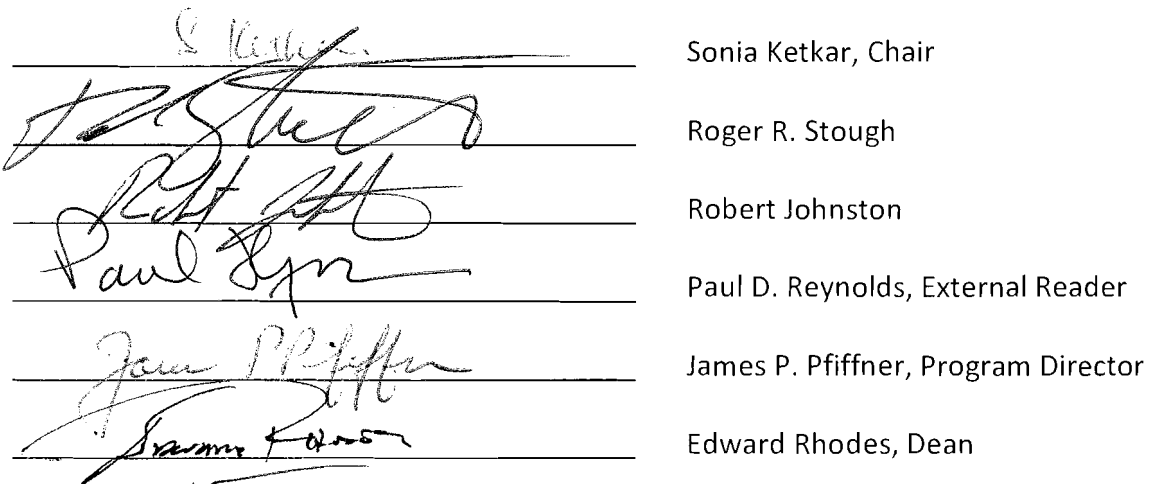 S Ketkar Sonia Ketkar, Chair
Roger R. Stough
Robert Johnston
Paul Reynolds Paul D. Reynolds, External Reader
James P Pfiffner James P. Pfiffner, Program Director
Edward Rhodes, Dean